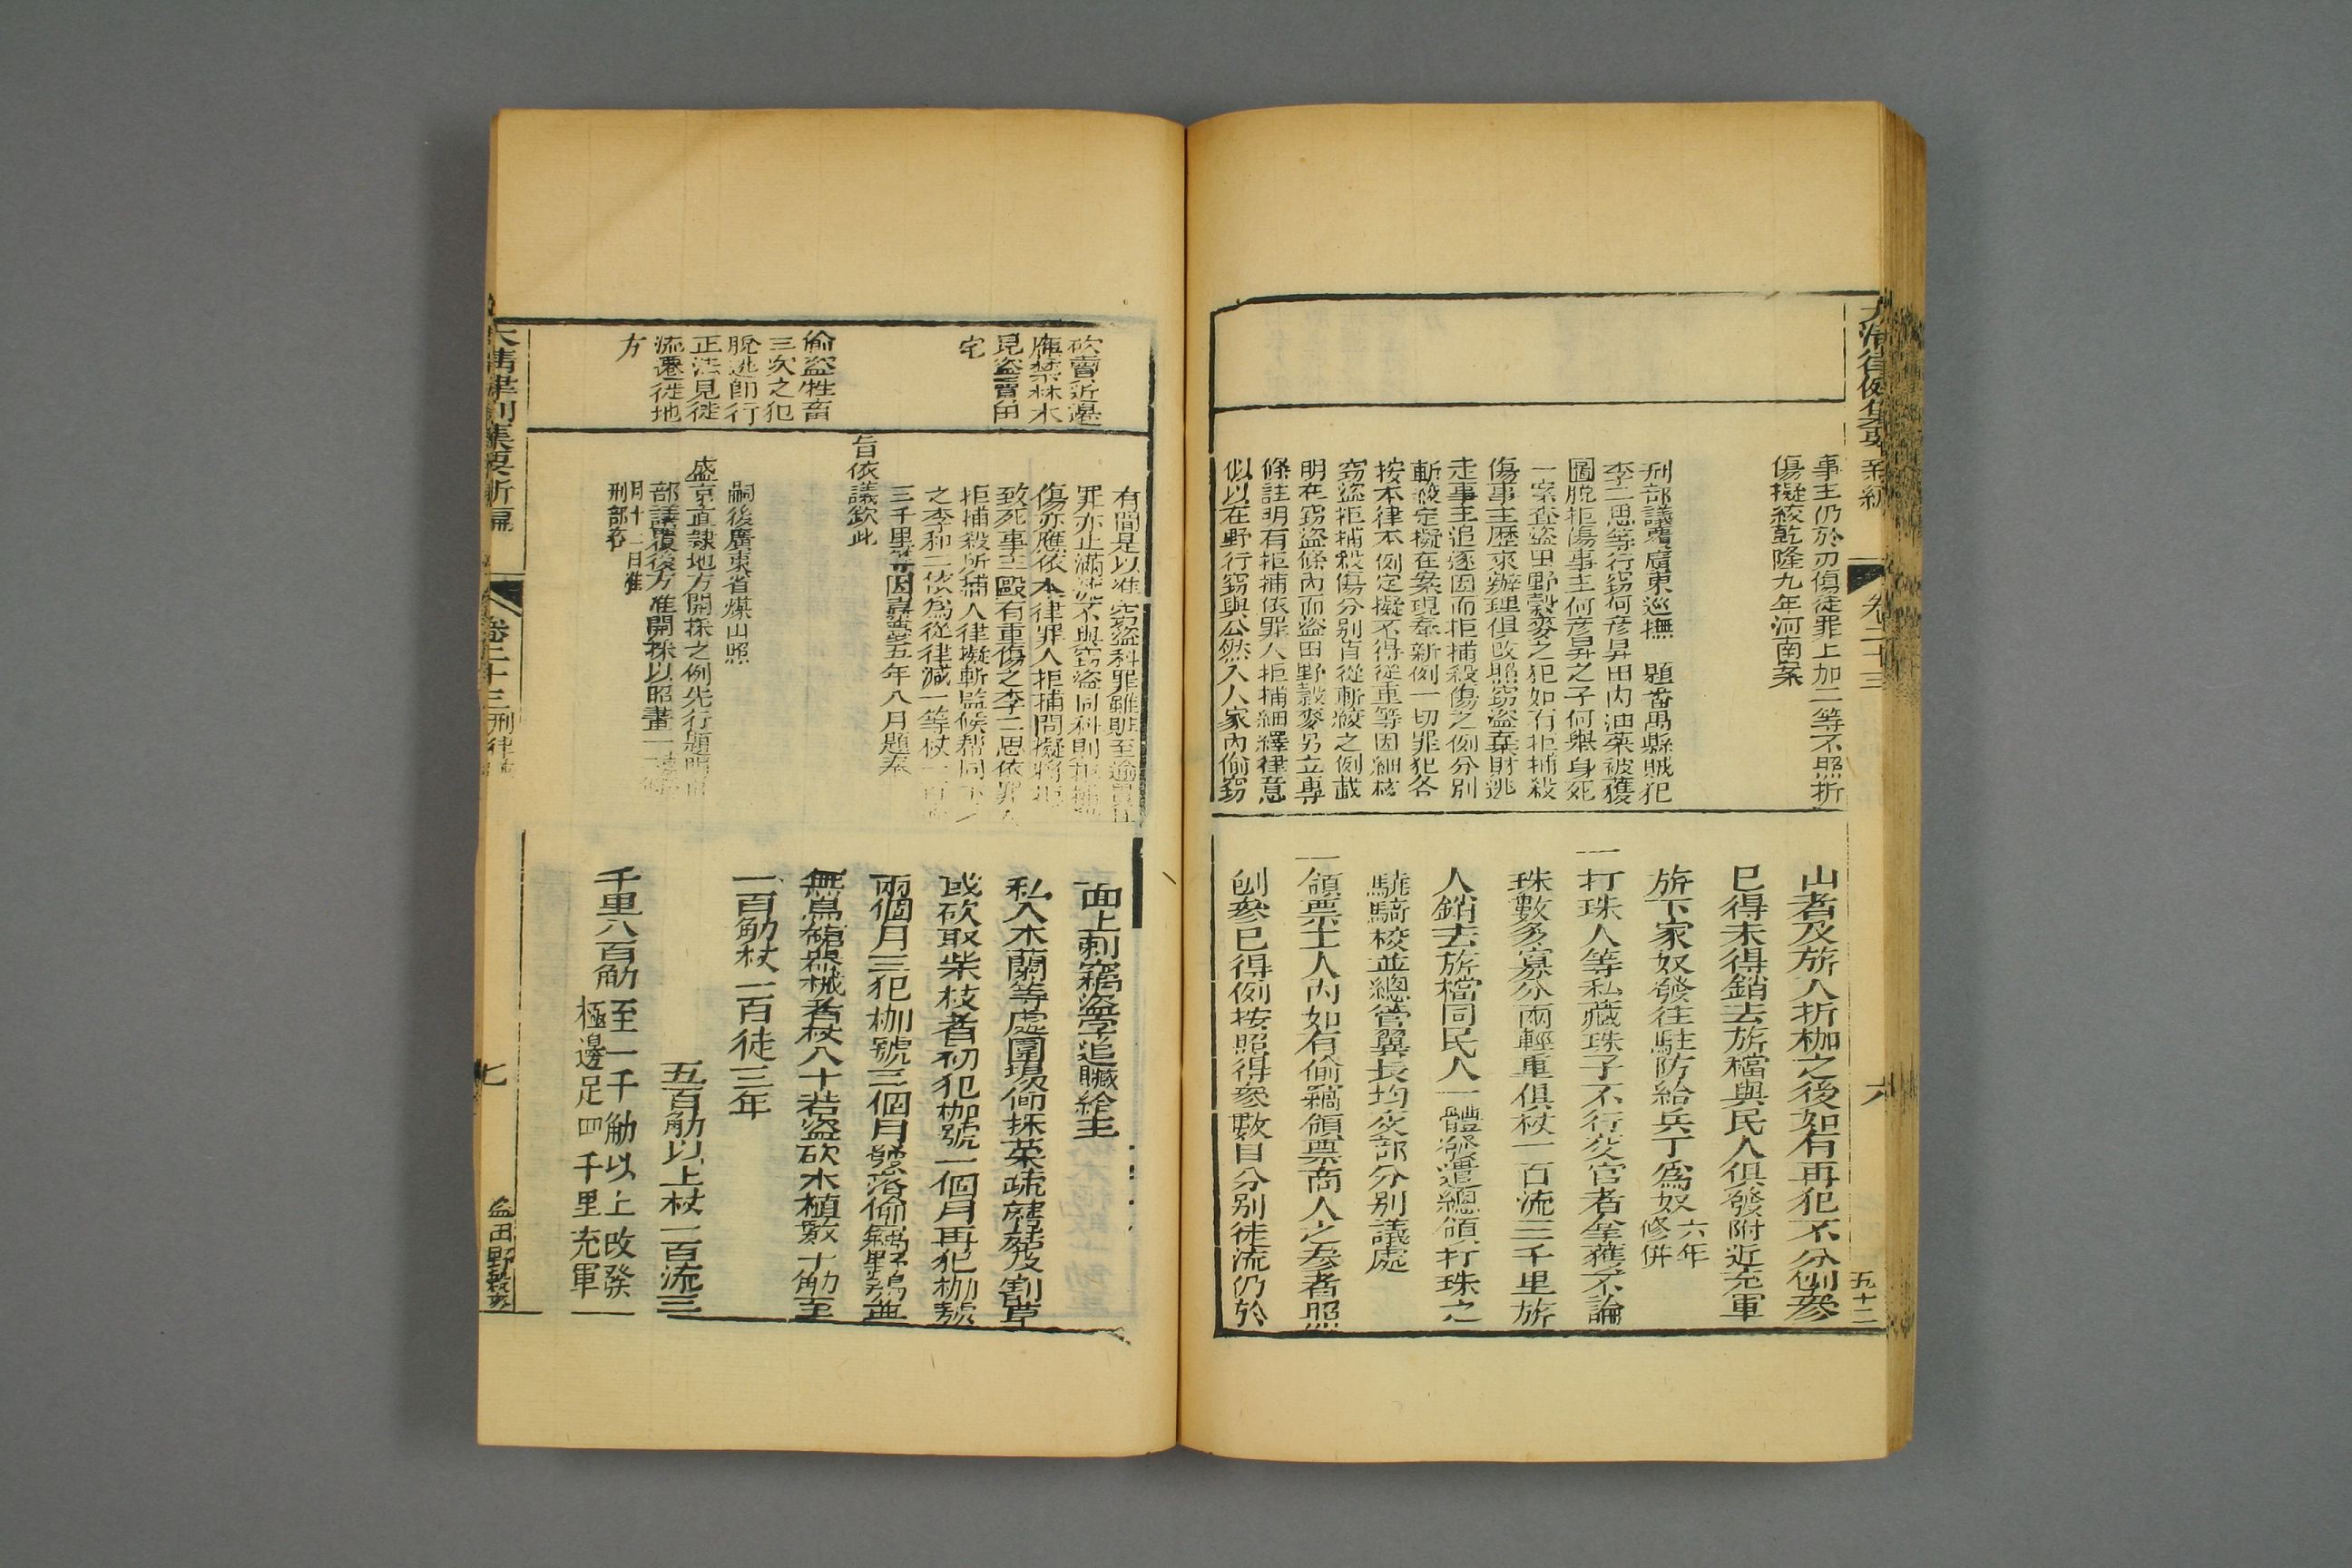 大清律例集要新編
卷二十三
六
五十二
事主仍於刃傷徒罪上加二等不照折
傷擬絞乾隆九年河南案
刑部議覆廣東巡撫 題番禺縣賊犯
李二思等行窃何彦昇田内油菜被獲
圖脫拒傷事主何彦昇之子何舉身死
一案查盜田野穀麥之犯如有拒捕殺
傷事主歷來辦理俱改照窃盜棄財逃
走事主追逐因而拒捕殺傷之例分別
斬絞定擬在案現奉新例一切罪犯各
按本律本例定擬不得從重等因細核
窃盜拒捕殺傷分別首從斬絞之例載
明在窃盜條内而盜田野穀麥另立專
條註明有拒捕依罪人拒捕細繹律意
似以在野行窃與公然入人家内偷窃
山者及旂人折枷之後如有再犯不分刨參
已得未得銷去旂檔與民人俱發附近充軍
旂下家奴發往駐防給兵丁爲奴六年修併
一打珠人等私藏珠子不行交官者拿獲不論
珠數多寡分兩輕重俱杖一百流三千里旂
人銷去旂檔同民人一體發遣總領打珠之
驍騎校並總管翼長均交部分別議處
一領票工人内如有偷竊領票商人之參者照
刨參已得例按照得參數目分別徒流仍於
砍賣近邊
應禁林木
見盜賣田
宅
偷盜牲畜
三次之犯
脫逃卽行
正法見徒
流遷徙地
方
有間是以准窃盜科罪雖賍至逾貫其
罪亦止滿流不與窃盜同科則拒捕
傷亦應依本律罪人拒捕問擬將拒
致死事主毆有重傷之李二思依罪人
拒捕殺所捕人律擬斬監候帮同下
之李和二依爲從律減一等杖一百流
三千里等因嘉慶五年八月題奉
旨依議欽此
嗣後廣東省煤山照
盛京直隸地方開採之例先行題明
部議覆後方准開採以昭畫一
月十二日准
刑部存
面上刺竊盜字追贓給主
一私入木蘭等處圍場偷採菜蔬蘑菇及割草
或砍取柴枝者初犯枷號一個月再犯枷號
兩個月三犯枷號三個月發落偷竊野雞並
無鳥鎗器械者杖八十若盜砍木植數十觔至
一百觔杖一百徒三年
五百觔以上杖一百流三
千里八百觔至一千觔以上改發
極邊足四千里充軍一
大清律例集要新編
卷二十三
刑律
七
盜田野穀麥